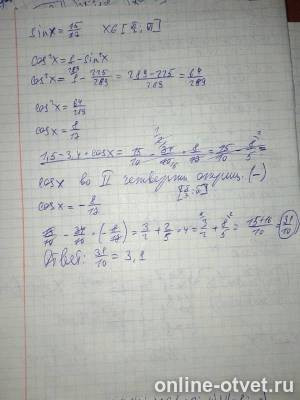 sinx = 15/17 x∈[π/2; π]
cos²x = 1 - sin²x
cos²x = 1 - 225/289 = 289-225/289 = 64/289
cos²x = 64/289
cosx = 8/17
1,5 - 3,4 · cosx = 15/10 - 34/10 · 8/17 = 15/10 - 8/5 =
cosx во II четверти отриц. (-)
[π/2; π]
cosx = - 8/17
15/10 - 34/10 · (- 8/17) = 3/2 + 2/5 · 4 = 3/2 + 8/5 = 15+16/10 = 31/10
Ответ: 31/10 = 3,1
online-otvet.ru